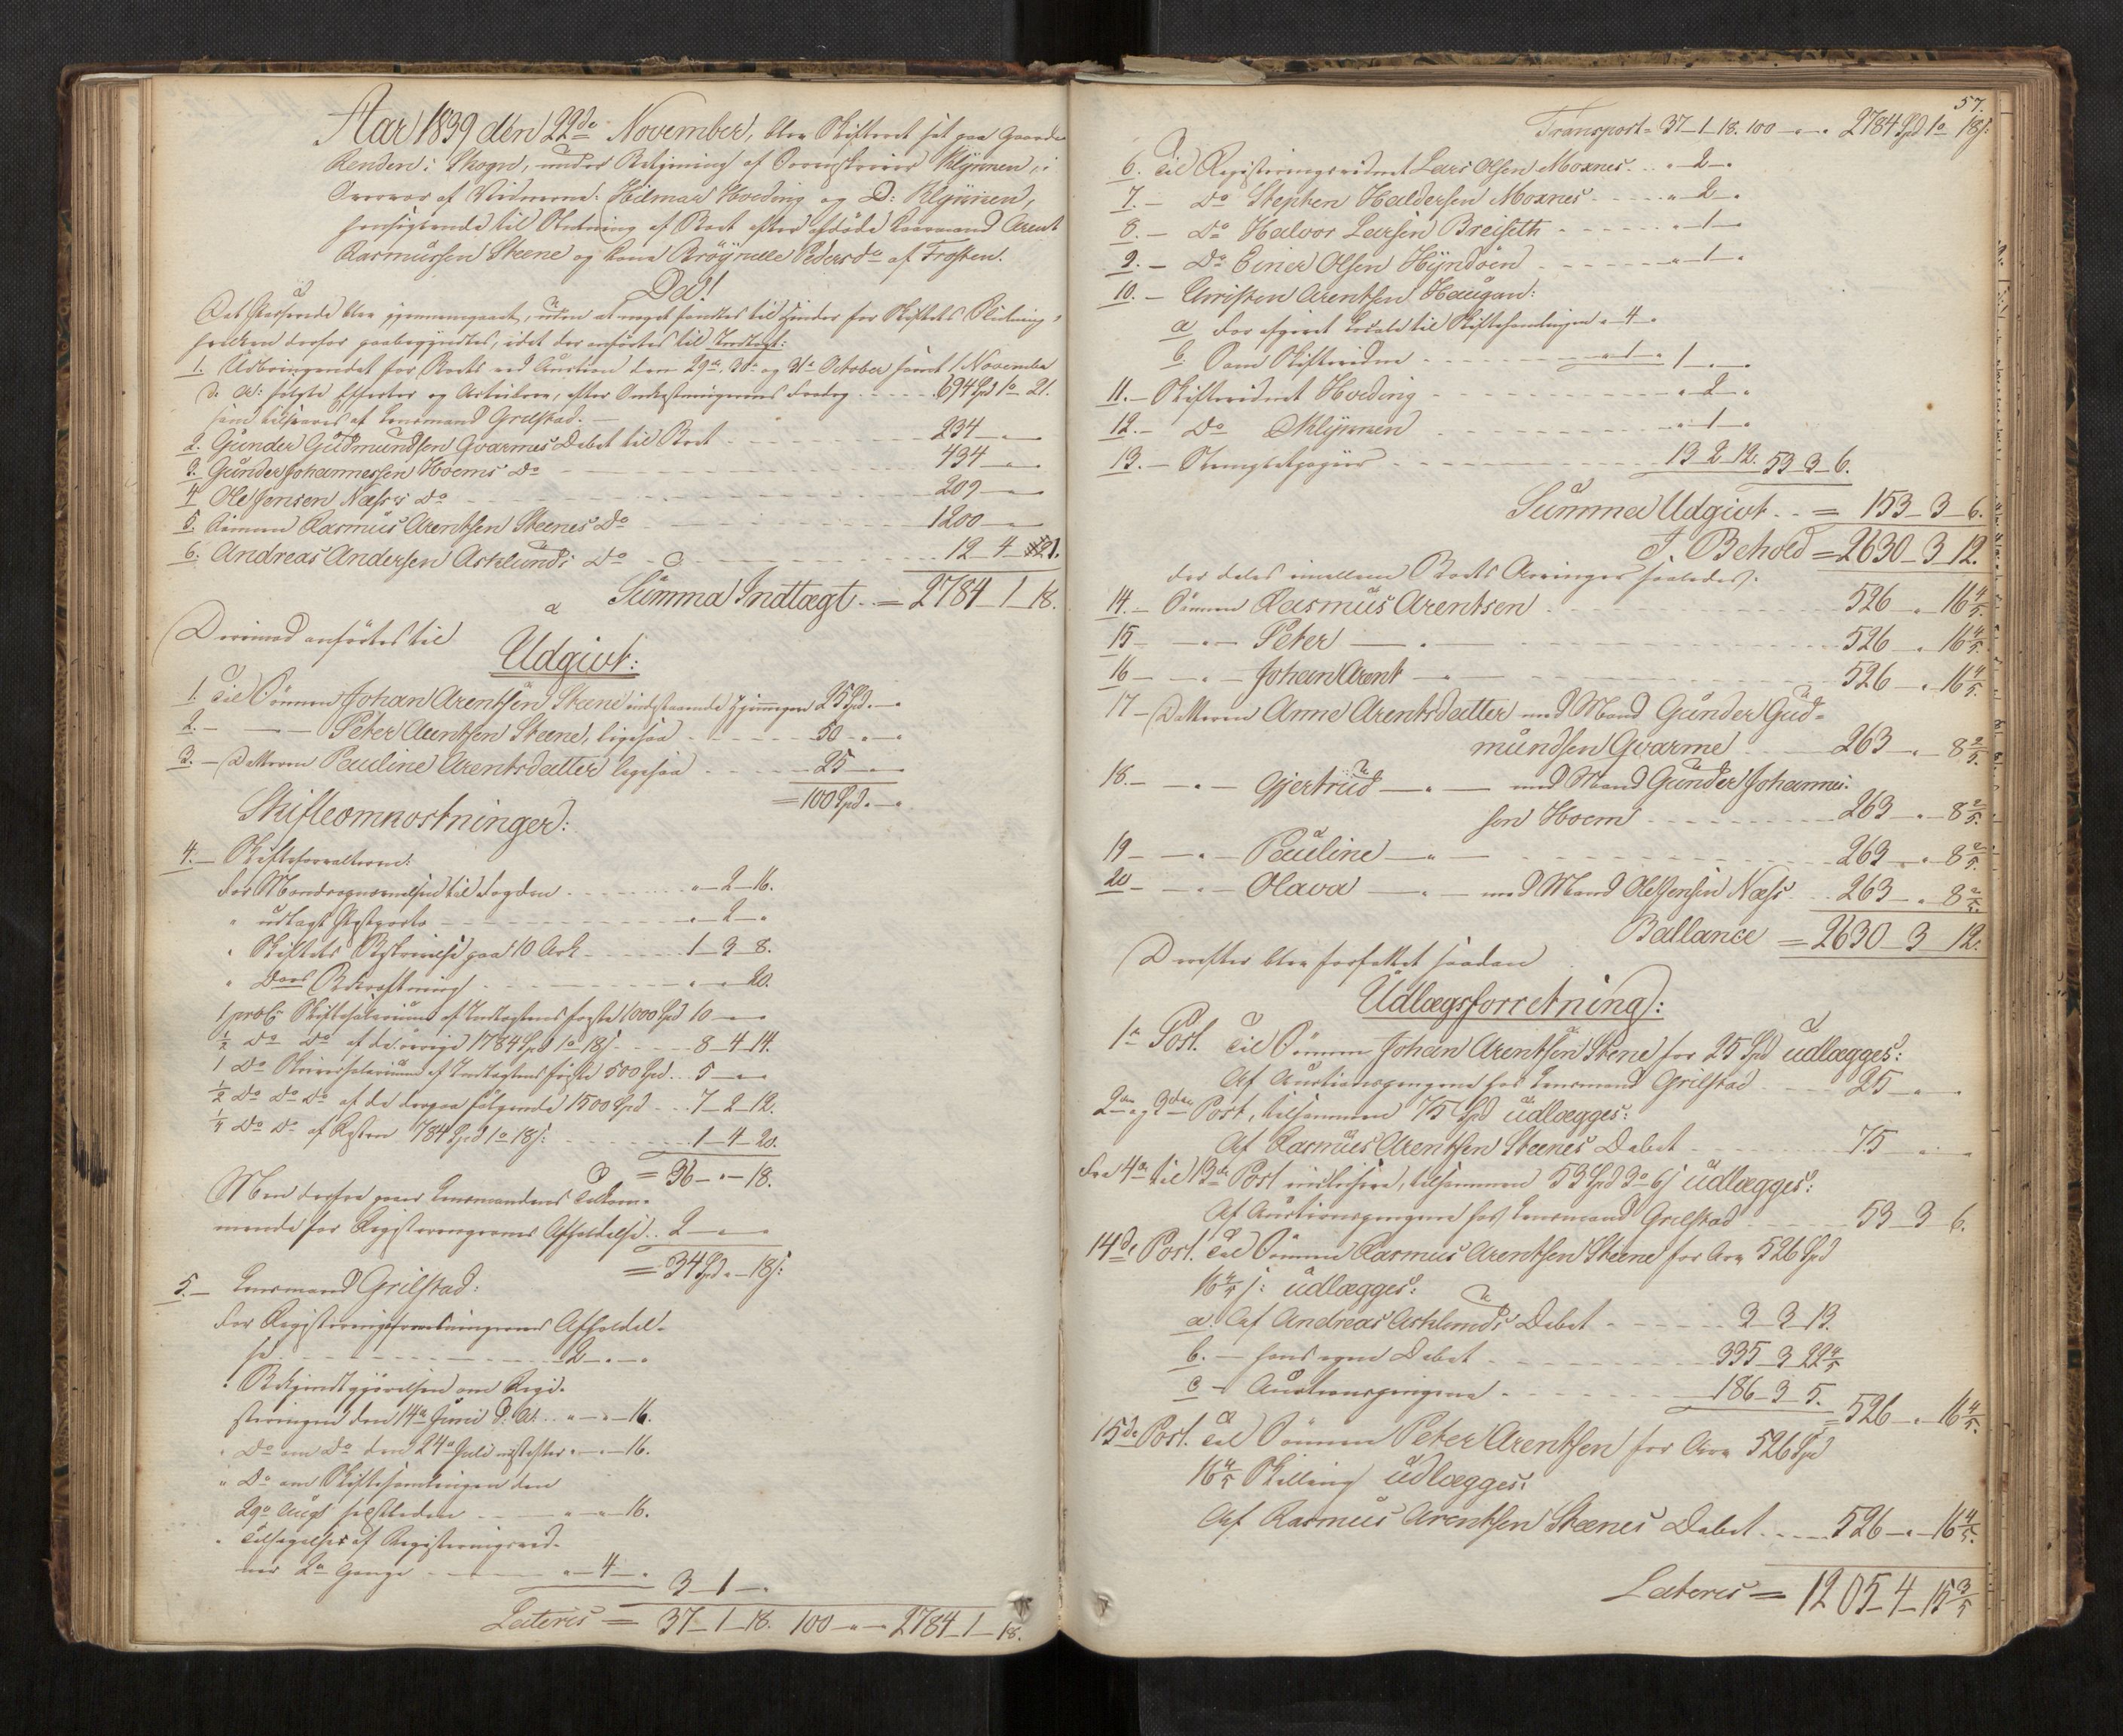 Aar 1839 den 22de November, blev Skifteret sat paa Gaarden
Renden i Skogn, under Betjening af Sorenskriver Klÿwen, i
Overvær af Vidnerne: Hilmar Hveding og D: Klÿwen,
hensigtende til Slutning af Boet efter afdøde Kaarmand Arent
Rasmussen Steene og Kone Brøÿnelle Pedersdr af Frosten.
Da!
Det Passerede blev gjennemgaaet, uden at noget fandtes til Hinder for Skiftets Slutning,
hvilken derfor paabegyndtes, idet der anførtes til Indtægt:
1. Udbringendet for Boets ved Auction den 29de, 30te og 31te October samt 1 November
d. A: solgte Effecter og Activer, efter Omkostningernes Fradrag 694 Spd 1o 21.
som tilsvares af Lensmand Grilstad.
2. Gunder Gudmundsen Qvarmes Debet til Boet 234 " "
3. Gunder Johannessen Hoems Do 434 " "
4 Ole Jensen Næss's Do 209 " "
5. Sønnen Rasmus Arentsen Steenes Do 1200 " "
6. Andreas Andersen Asklunds Do 12 4 21.
Summa Indtægt = 2784 1 18.
Derimod anførtes til
Udgivt:
1. Til Sønnen Johan Arentsen Steene indestaaende Hjemmegave 25 Spd. "
2. — " — Peter Arentsen Steene, ligesaa 50 " "
3. — Datteren Pauline Arentsdatter ligesaa 25 " "
= 100 Spd. "
Skifteomkostninger:
4. — Skifteforvalteren:
for Mandtagnævnelsen til Fogden " 2 16.
" udlagt Postporto " 2 "
" Skiftets Beskrivelse paa 10 Ark 1 3 8.
" Dens Bekræftning " " 20.
1 proC. Skiftesalarium af Indtægtens første 1000 Spd 10 " "
½ Do Do af de øvrige 1784 Spd 1o 18 s 8 4 14.
1 Do Skriversalarium af Indtægtens første 500 Spd 5 " "
½ Do Do Do af de derpaa følgende 1500 Spd 7 2 12.
¼ Do Do af Resten 784 Spd 1o 18 s: 1 4 20.
= 36 " 18.
Men derfra gaaer Lensmandens Tilkom-
mende for Registreringernes Afholdelse 2 " "
= 34 Spd " 18 s:
5. — Lensmand Grilstad:
For Registreringsforretningernes Afholdel-
se 2 " "
" Bekjendtgjørelsen om Regi-
streringen den 14de Juni d. A. " " 16.
" Do om Do den 24de Juli næstefter " " 16.
" Do om Skiftesamlingen den
29de Augs sidstleden " " 16.
" Tilsigelser af Registreringsvid-
ner 2de Gange " 4 "
3 1 "
Lateris = 37 1 18. 100 " " 2784 1 18.
57.
Transport = 37 1 18. 100 " " 2784 Spd 1o 18 s:
6. Til Registreringsvidnet Lars Olsen Moxnes " 2 "
7. — Do Stephen Haldorsen Moxnes " 2 "
8. — Do Halvor Larsen Breiseth " 1 "
9. — Do Einer Olsen Hÿndøen " 1 "
10. — Christen Arentsen Haugan:
a for afgivet Locale til Skiftesamlingen " 4 "
b. Som Skiftevidne " 1 " 1 " "
11. — Skiftevidnet Hveding " 2 "
12. — Do Klÿwen " 1 "
13. — Stempletpapiir 13 2 12. 53 3 6.
Summa Udgivt = 153 3 6.
I. Behold = 2630 3 12.
der deles imellem Boets Arvinger saaledes:
14. — Sønnen Rasmus Arentsen 526 " 16 4/5.
15 — " — Peter — " — 526 " 16 4/5.
16 — " — Johan Arent — " — 526 " 16 4/5.
17 — Datteren Anne Arentsdatter med Mand Gunder Gud-
mundsen Qvarme 263 " 8 2/5.
18. — " — Gjertrud — " — med Mand Gunder Johannes-
sen Hoem 263 " 8 2/5.
19 — " — Pauline — " — 263 " 8 2/5.
20 — " — Olava — " — med Mand Ole Jensen Næss 263 " 8 2/5.
Ballance = 2630 3 12.
Derefter blev forfattet saadan
Udlægsforretning:
1ste Post. Til Sønnen Johan Arentsen Stene for 25 Spd udlægges:
Af Auctionspengene hos Lensmand Grilstad 25 " "
2den og 3die Post, tilsammen 75 Spd udlægges:
Af Rasmus Arentsen Steenes Debet 75 " "
Fra 4de til 13de Post inclusive, tilsammen 53 Spd 3o 6 s udlægges:
Af Auctionspengene hos Lensmand Grilstad 53 3 6.
14de Post. Til Sønnen Rasmus Arentsen Steene for Arv 526 Spd
16 4/5 s: udlægges:
a Af Andreas Asklunds Debet 3 3 13.
b. — hans egen Debet 335 3 22 4/5
c — Auctionspengene 186 3 5. = 526 " 16 4/5.
15de Post. Til Sønnen Peter Arentsen for Arv 526 Spd
16 4/5 Skilling udlægges:
Af Rasmus Arentsen Steenes Debet 526 " 16 4/5.
Lateris = 1205 4 15 3/5